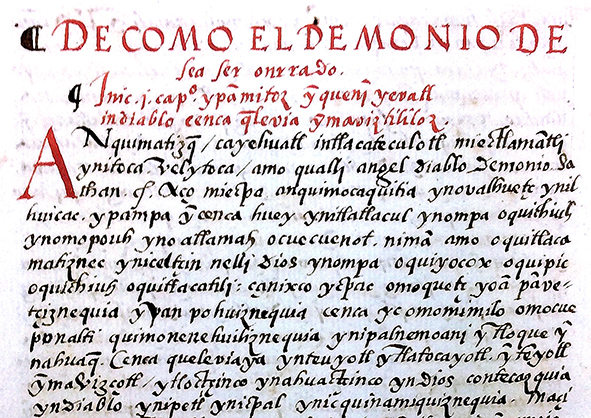 ¶ DE COMO EL DEMONIO DE
sea ser onrrado.
¶ Inic .j. capº. ypā mitoz ȳ queni yevatl
in diablo cenca q̄levia ȳ maviztililoz.
ANquimatizq̄ / ca yehuatl intlacateculotl miectlamātli
yni toca. vel ytoca / amo qualli angel diablo Demonio. Sa
than. Aço miecpa anquimocaquitia yn ovalhuetz yn il
huicac. ypampa ȳ cenca huey ynitlatlacul ynompa oquichiuh
ynomopouh yno atlamah ocuecuenot. nimā amo oquitlaca
matiznec yniceltzin nelli dios ynompa oquiyocox oquipic
oquichiuh oquitlacatili: çanixco ycpac omoquetz yoā pāve-
tziznequia ȳ pan pohuiznequia cenca yc omomimilo omocue
quimonenehuiliznequia ynipalnemoani ȳ tloque ȳ
nahuaq̄. Cenca quelevia ya ȳ teuyotl ȳ tlatocayotl. ȳ teyotl
ȳ mavizcotl / ytloctzinco ynahuactzinco yn dios contecazquia
yn diablo ynipetl ynicpal ynic quinamiquiznequia. Maci